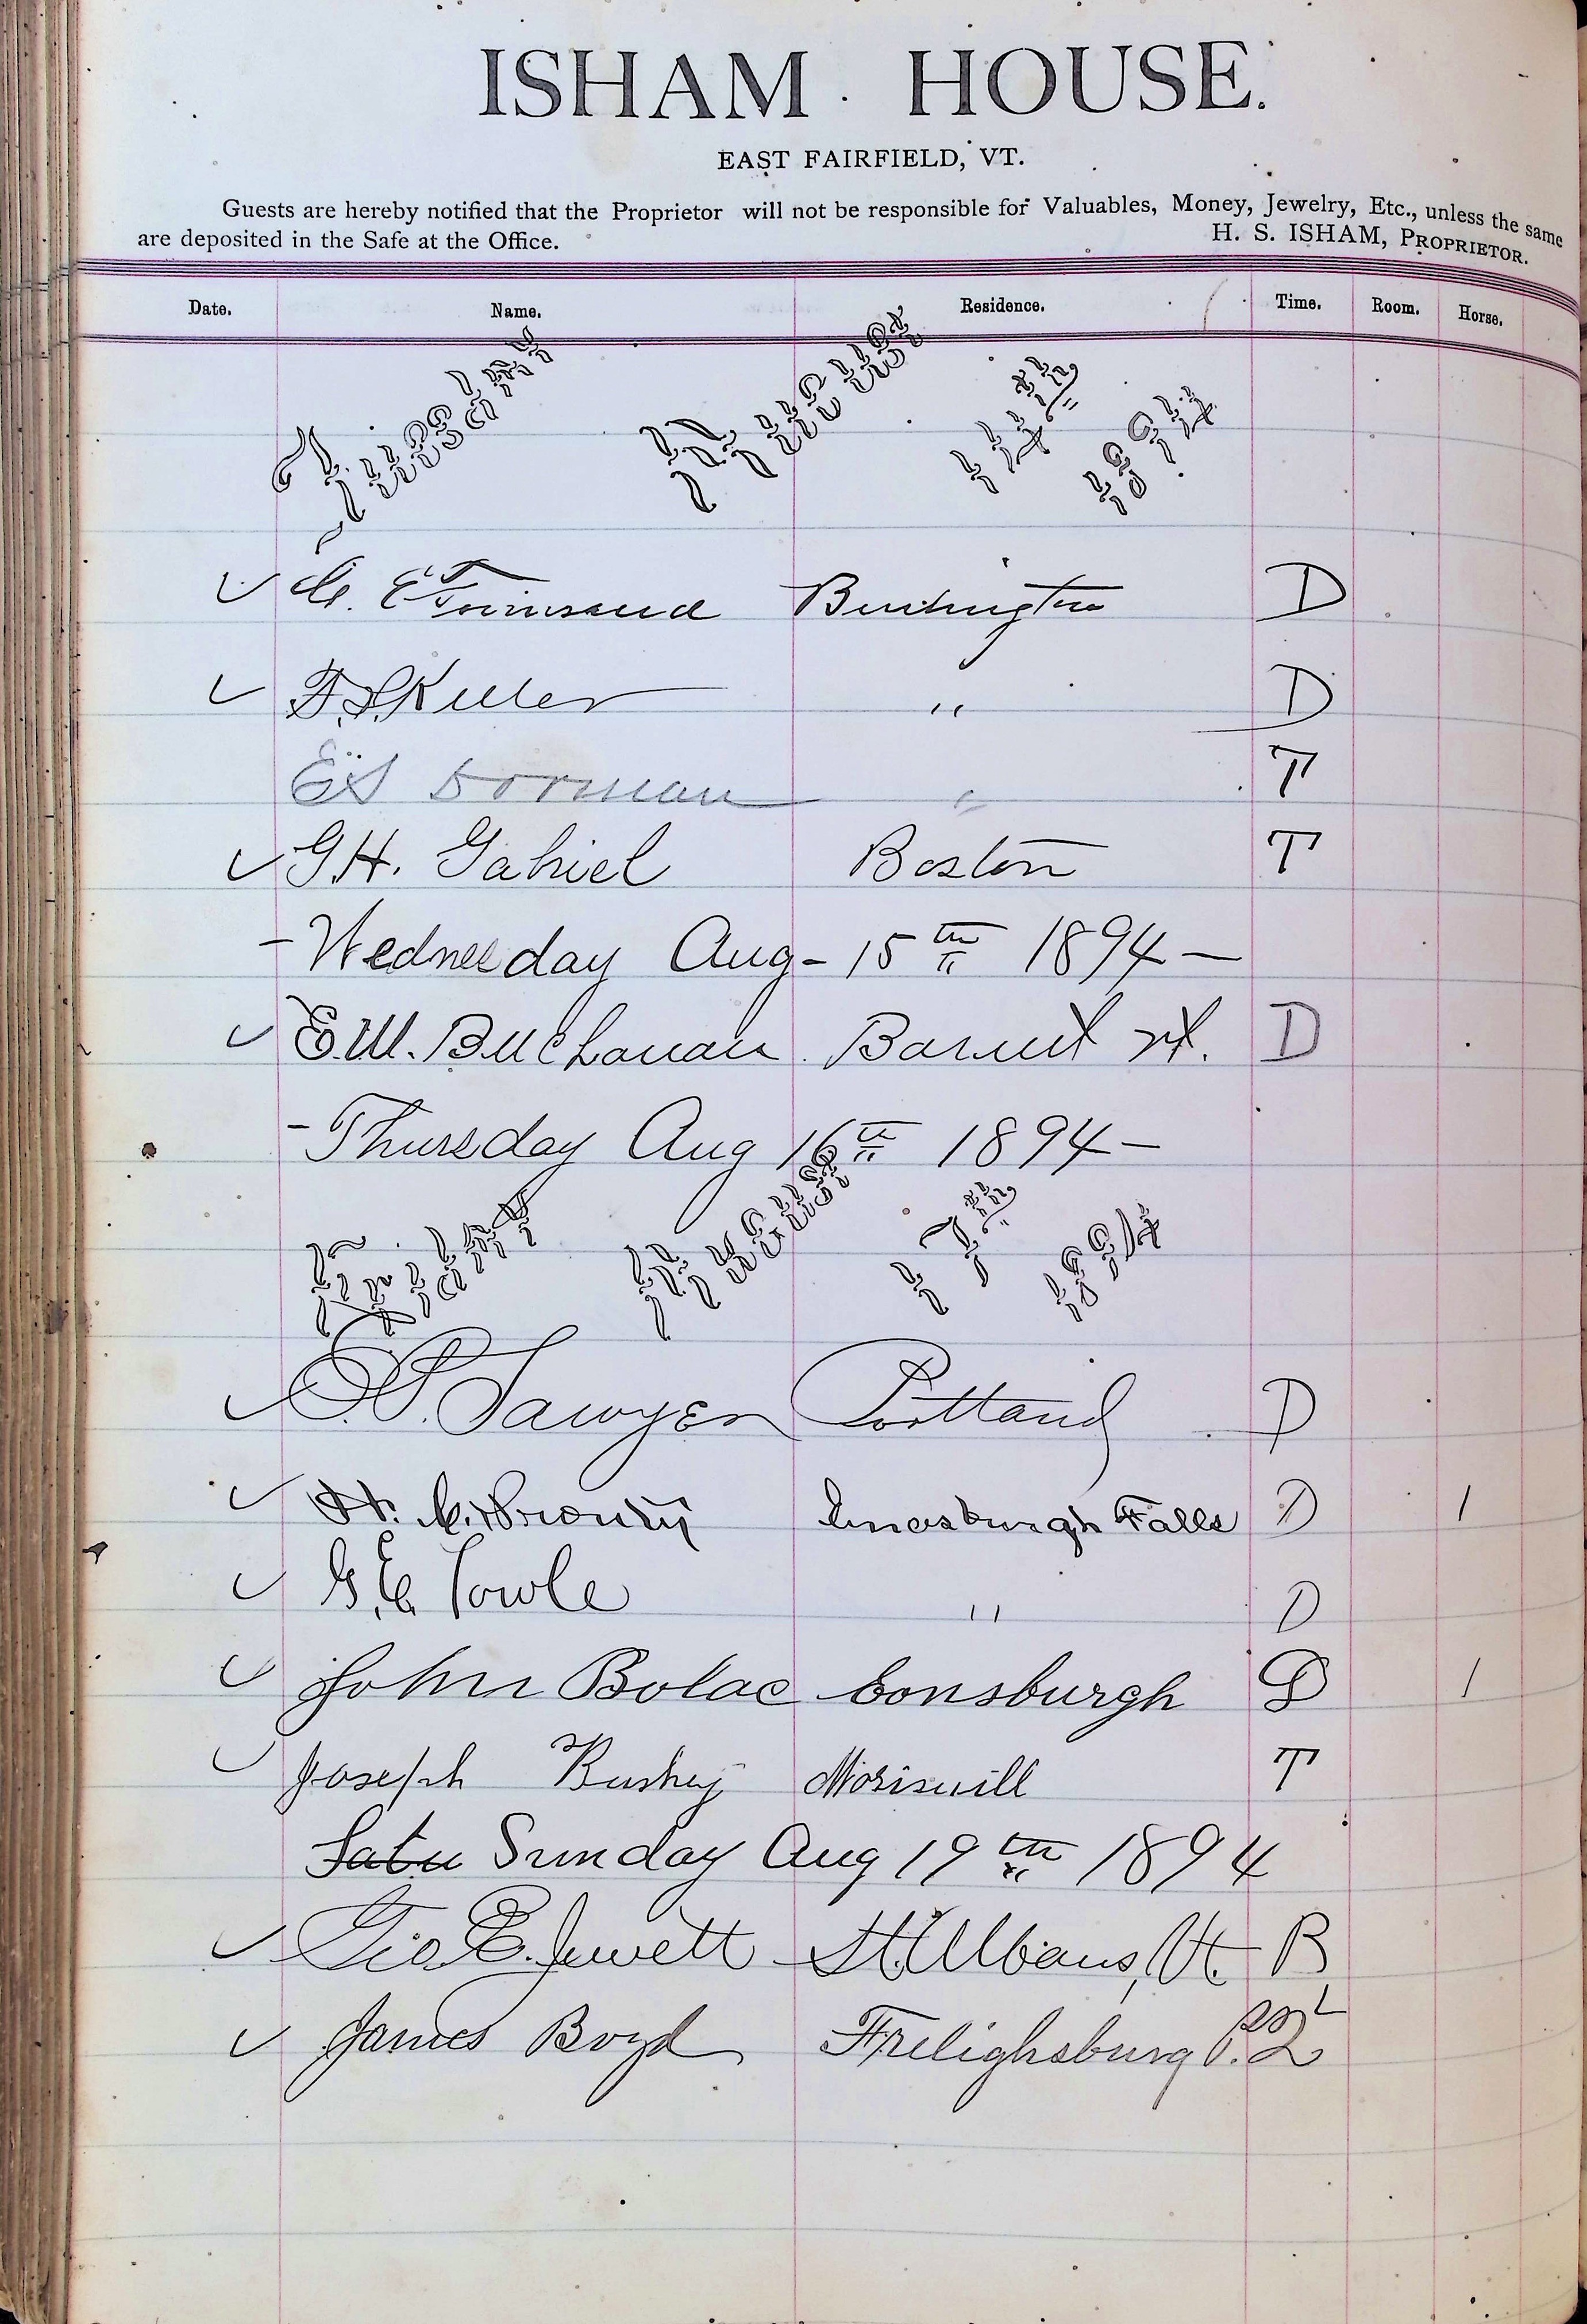 ISHAM HOUSE.
EAST FAIRFIELD, VT.
Guests are hereby notified that the Proprietor will not be responsible for Valuables, Money, Jewelry, Etc., unless the same
are deposited in the Safe at the Office. H. S. ISHAM, PROPRIETOR.
Date. Name. Residence. Time. Room. Horse.
Tuesday August 14th 1894.
E. Townsend Burlington D
" D
E S Dorman " T
G.H. Gabriel Boston T
- Wednesday Aug - 15th 1894 -
E.W. Buchanan Barnet Vt. D
- Thursday Aug 16th 1894 -
Friday August 17th 1894
P. Sawyer Portland D
H. Enosburgh Falls D 1
G.E. Towle " D
John Bolac Eonsburgh D 1
Joseph Bushey Morisvill T
Satu Sunday Aug 19th 1894
Geo. E. Jewett St. Albans, Vt. B
James Boyd Frelighsburg P.Q